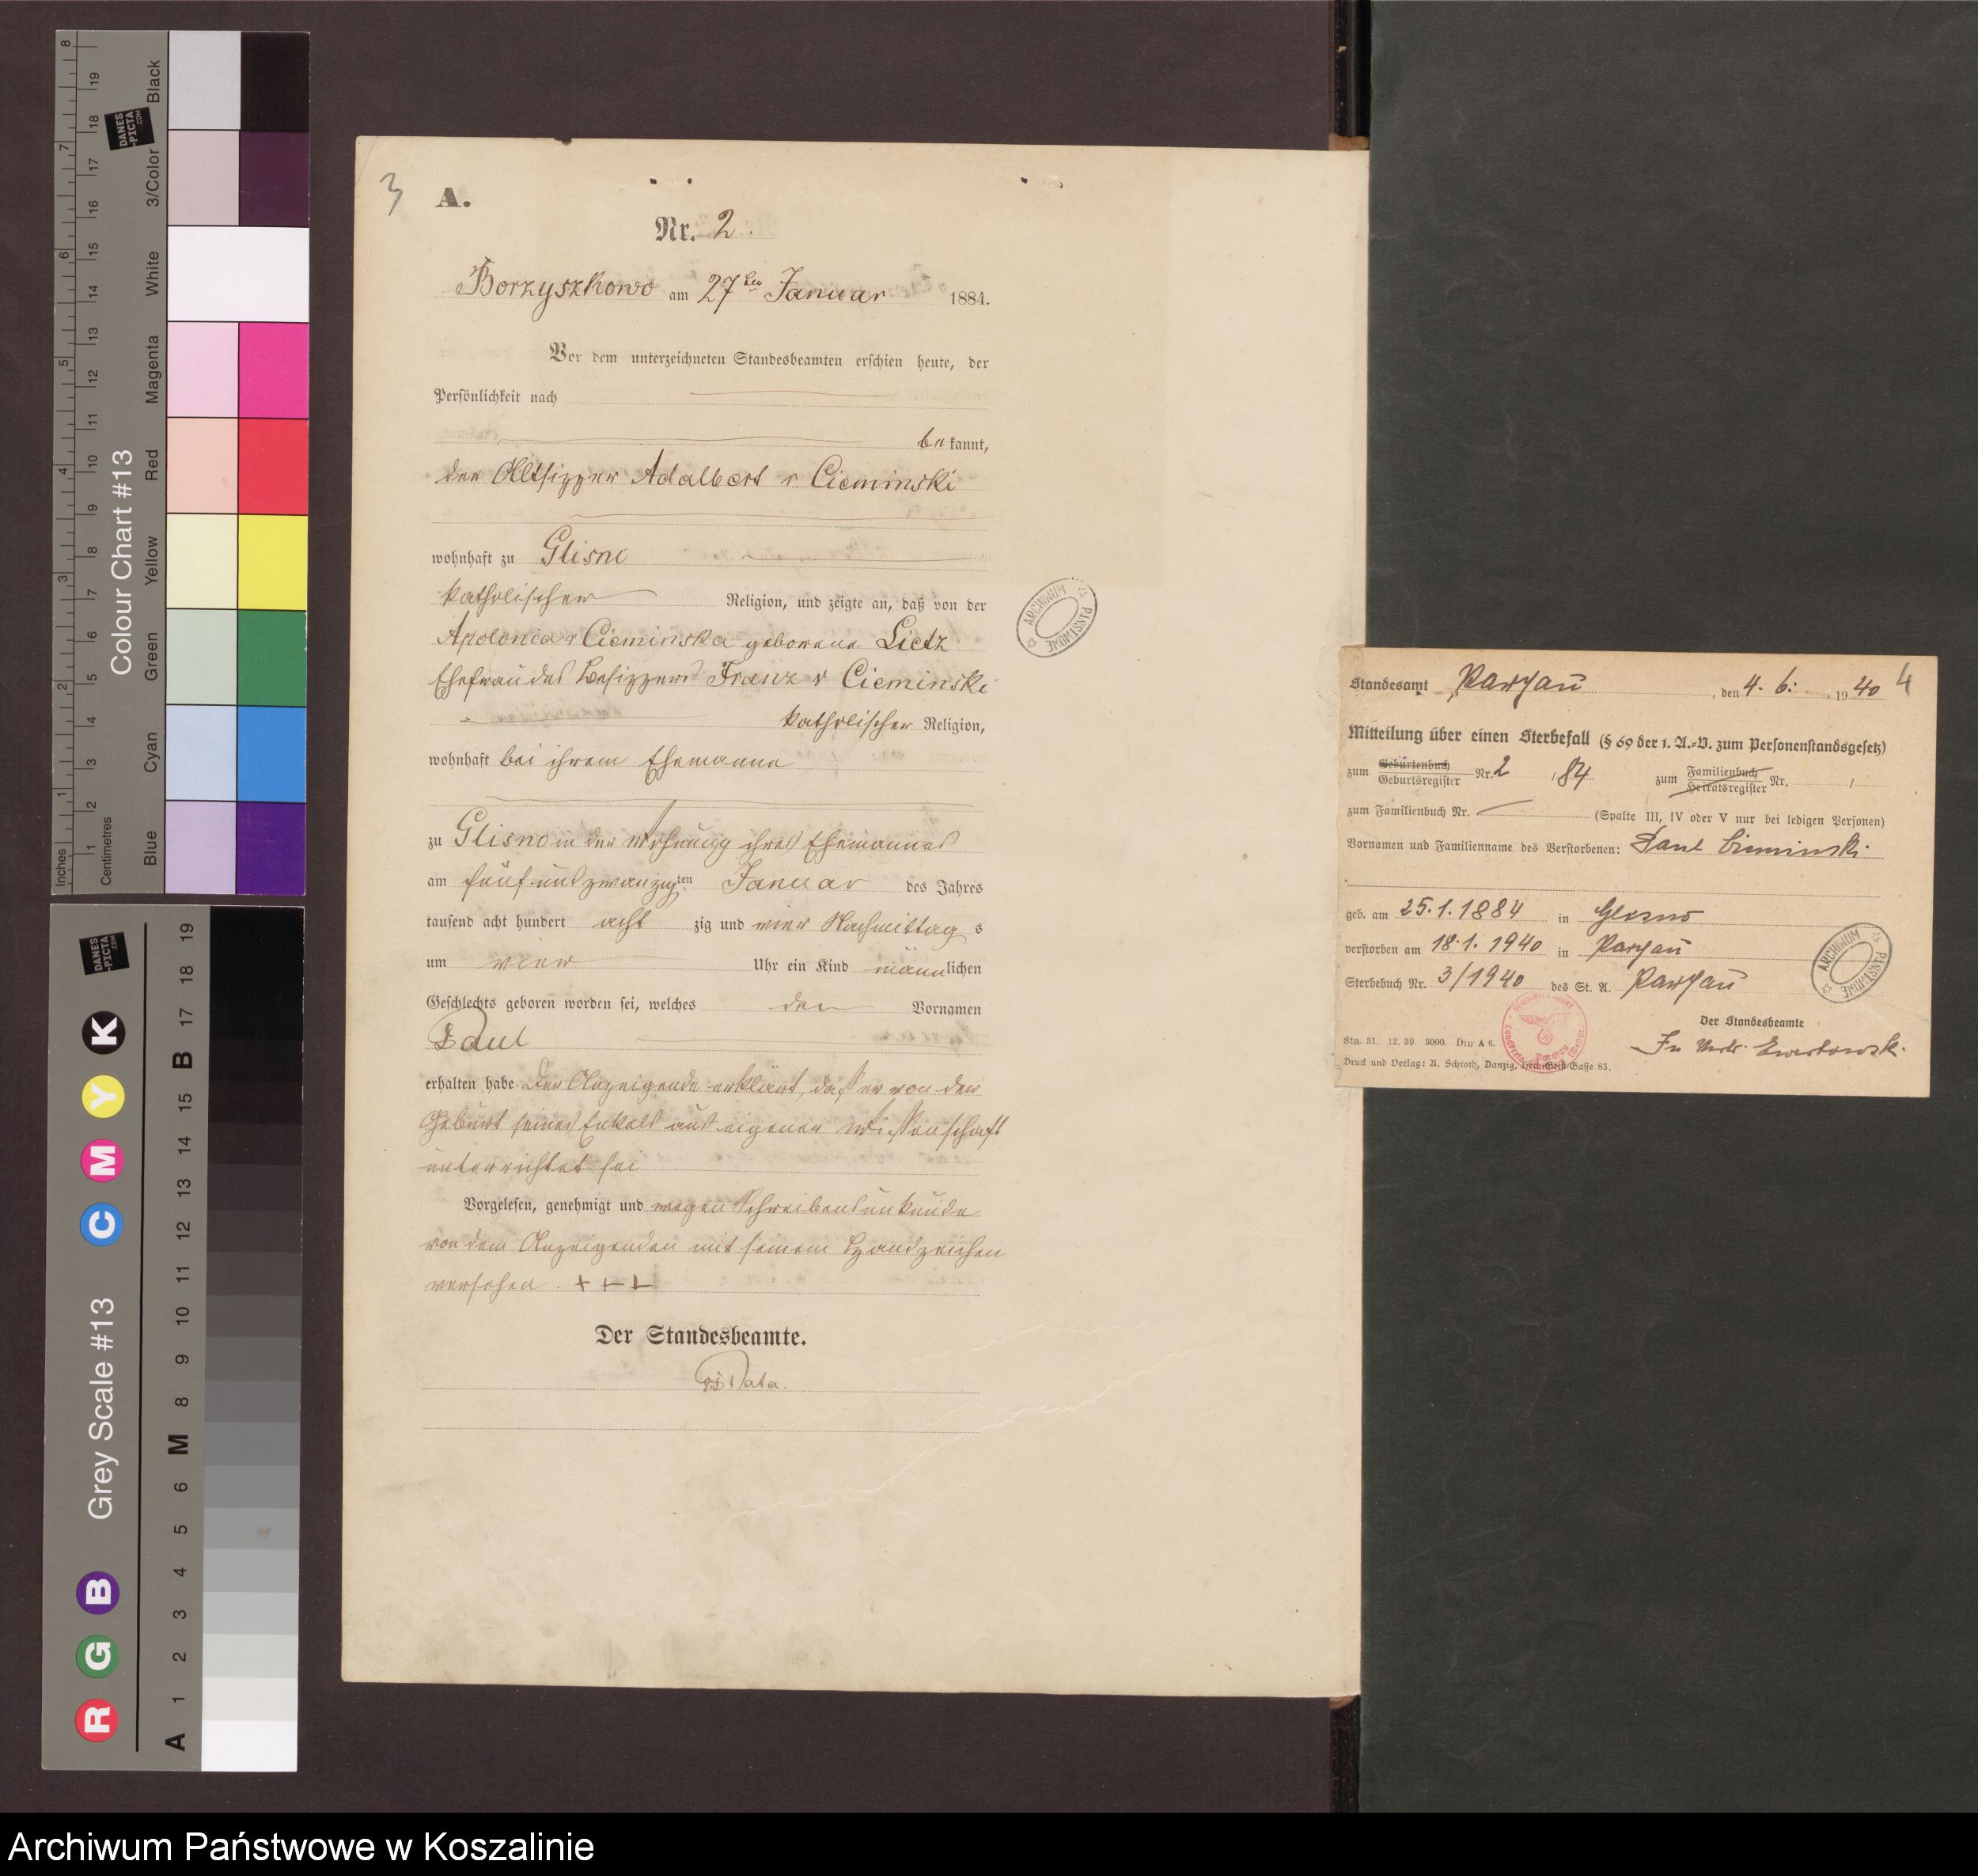 3
A.
Nr. 2.
Borzyszkowo am 27ten Januar 1884.
Vor dem unterzeichneten Standesbeamten erschien heute, der
Persönlichkeit nach
bekannt,
der Altsitzer Adalbert v Cieminski
wohnhaft zu Glisno
katholischer Religion, und zeigte an, daß von der
Apolonia v Cieminska geborene Lietz
Ehefrau des Besitzers Franz v Cieminski
katholischer Religion,
wohnhaft bei ihrem Ehemanne
zu Glisno in der Wohnung ihres Ehemannes
am fünf und zwanzigten Januar des Jahres
tausend acht hundert acht zig und vier Nachmittags
um vier Uhr ein Kind männlichen
Geschlechts geboren worden sei, welches den Vornamen
Paul
erhalten habe. Der Anzeigende erklärt, daß er von der
Geburt seines Enkels aus eigener Wissenschaft
unterrichtet sei
Vorgelesen, genehmigt und wegen Schreibensunkunde
von dem Anzeigenden mit seinem Handzeichen
versehen. +++
Der Standesbeamte.
Data.
ARCHIWUM PAŃSTWOWE
Standesamt Parchau, den 4. 6. 1940 4
Mitteilung über einen Sterbefall (§ 69 der 1. A.-V. zum Personenstandsgesetz)
zum Geburtenbuch Geburtsregister Nr. 2 / 84 zum Familienbuch Heiratsregister Nr. /
zum Familienbuch Nr. (Spalte III, IV oder V nur bei ledigen Personen)
Vornamen und Familienname des Verstorbenen: Paul Cieminski
geb. am 25.1.1884 in Glisno
verstorben am 18.1.1940 in Parchau
Sterbebuch Nr. 3/1940 des St. A. Parchau
Der Standesbeamte
In Vertr.
Sta. 31. 12. 39. 5000. Din A 6.
Druck und Verlag: A. Schroth, Danzig, Heil.-Geist-Gasse 83.
ARCHIWUM PAŃSTWOWE
Colour Chart #13
Inches
Centimetres
Blue Cyan Green Yellow Red Magenta White 3/Color Black
DANES-PICTA.COM
Grey Scale #13
R G B C M Y K
A 1 2 3 4 5 6 M 8 9 10 11 12 13 14 15 B 17 18 19
DANES-PICTA.COM
Archiwum Państwowe w Koszalinie